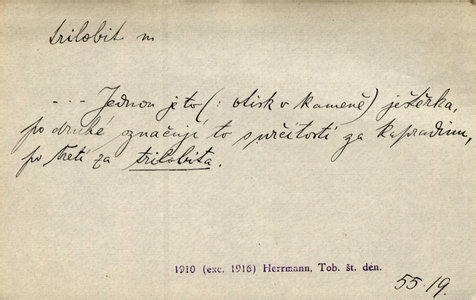 trilobit m
--- Jednou je to (: otisk v kameně) ještěrka,
po druhé označují to s určitostí za kapradinu,
po třetí za trilobita.
1910 (exc. 1916) Herrmann, Tob. št. den.
55·19.